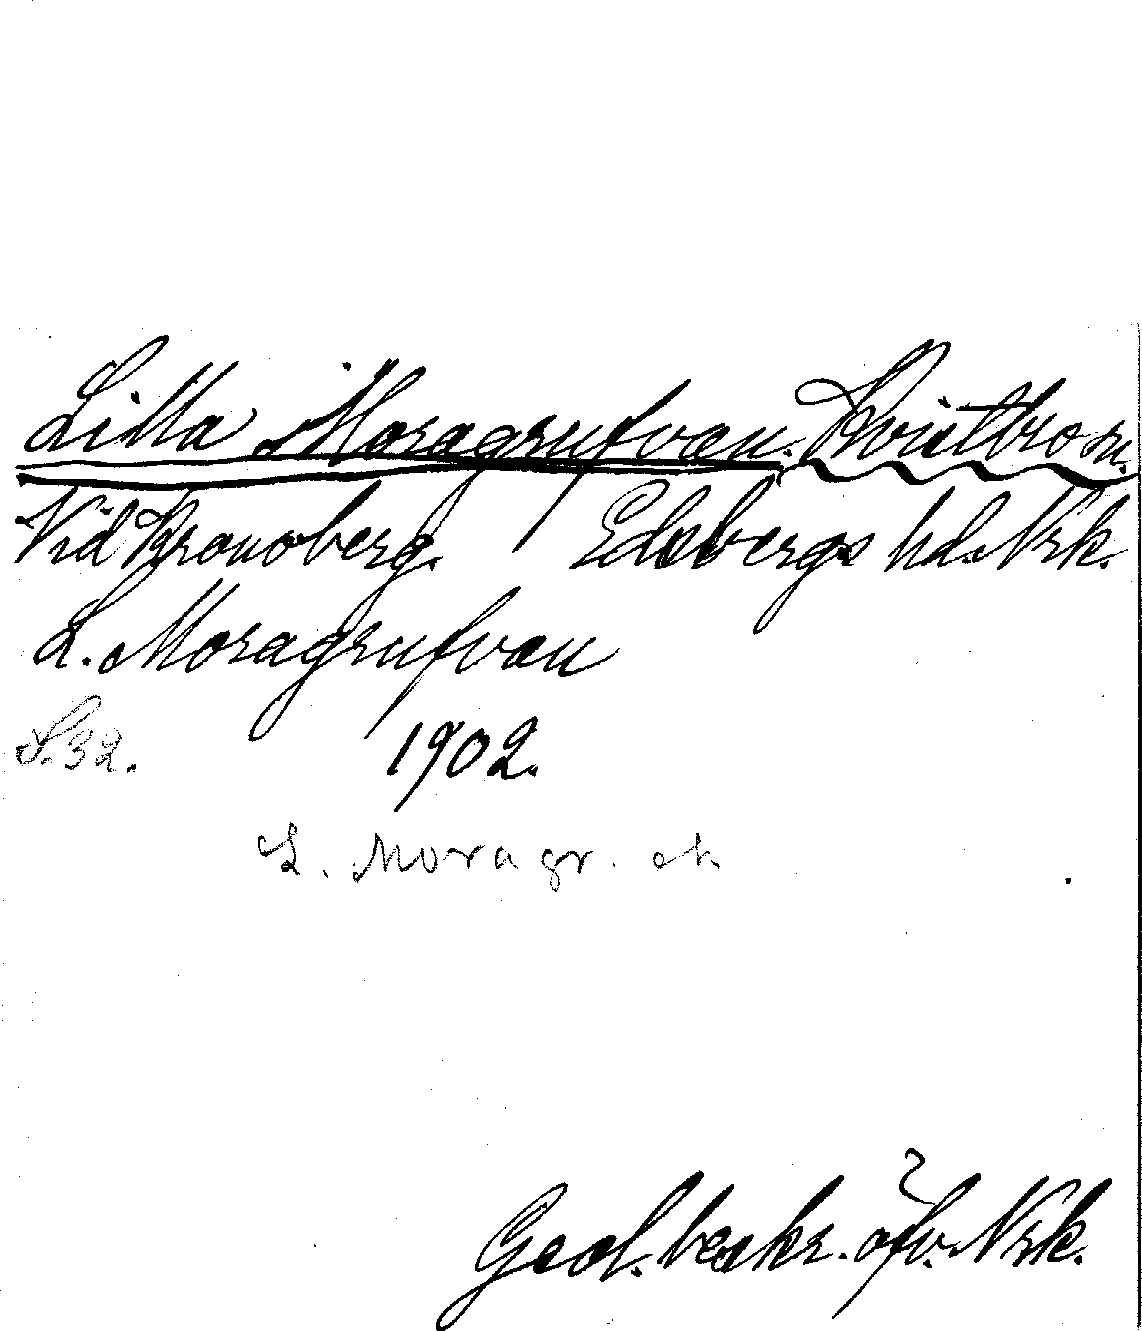 Lilla Moragrufvan. Kvistbro sn.
Vid Kronoberg. Edsbergs hd. Nrk.
L. Moragrufvan
S. 32. 1902.
L. Moragr. ek
Geol. beskr. öfv. Nrk.